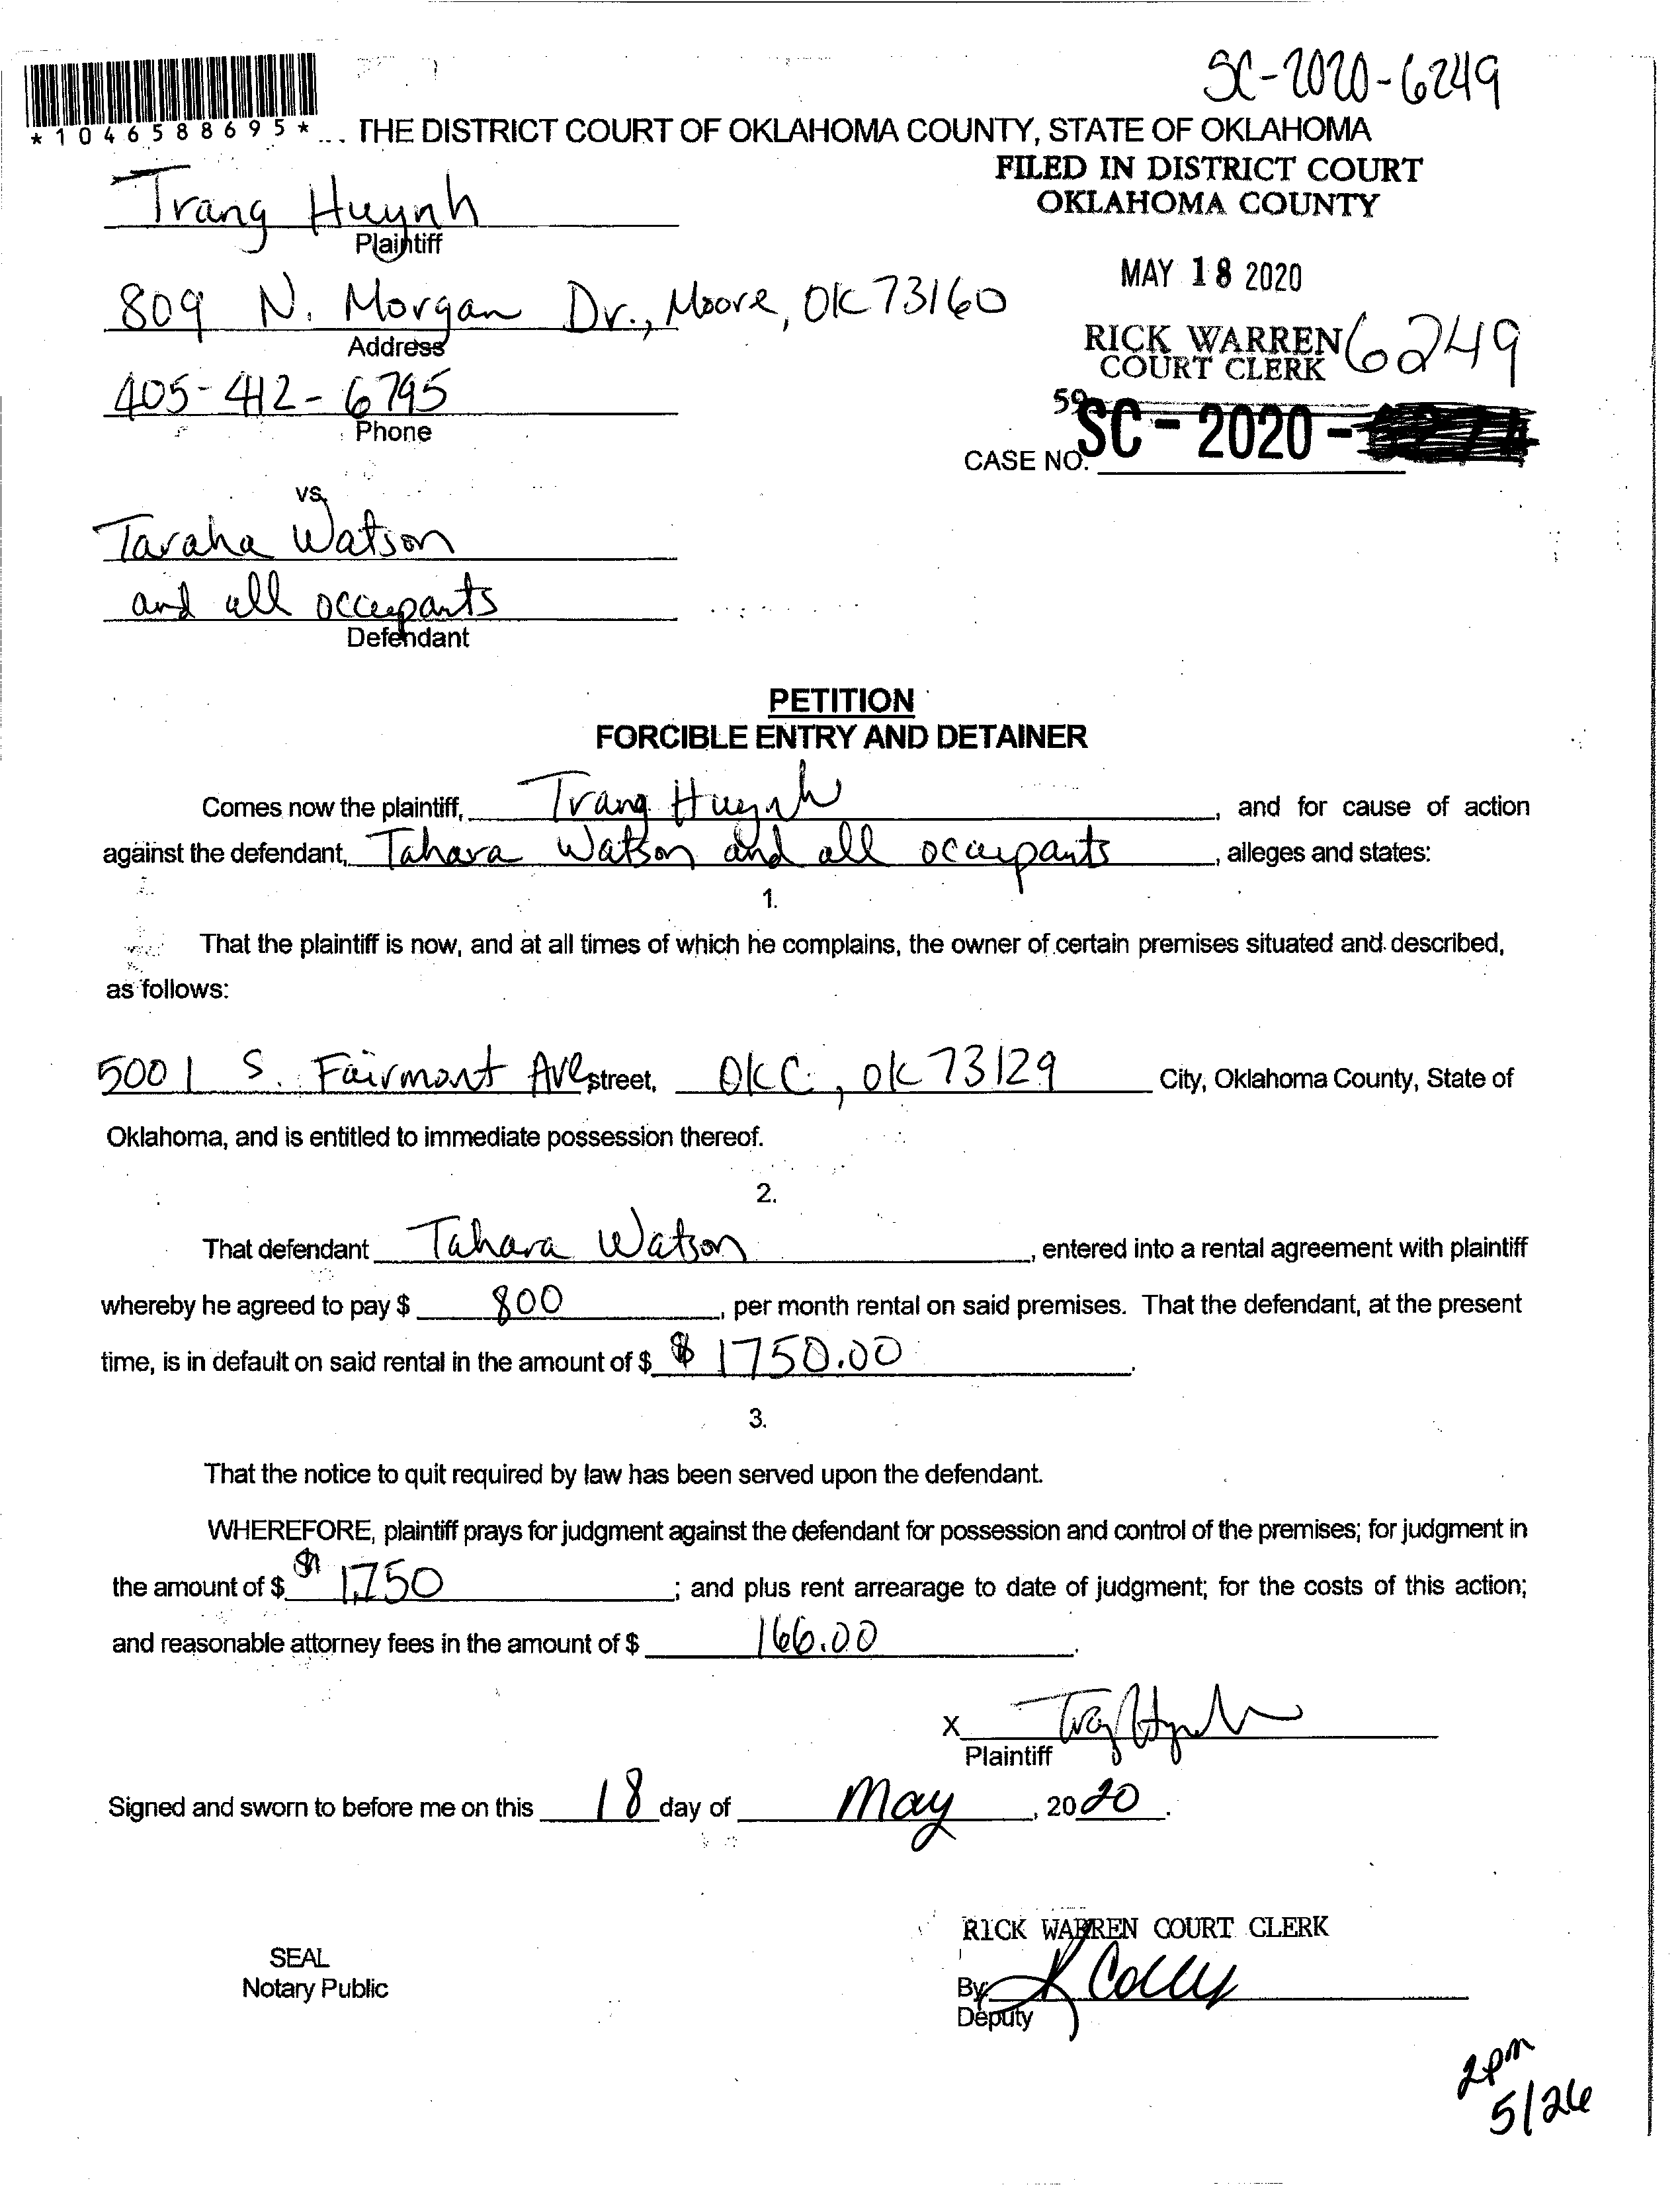 SC-2020-6249
*1046588695*
THE DISTRICT COURT OF OKLAHOMA COUNTY, STATE OF OKLAHOMA
FILED IN DISTRICT COURT
OKLAHOMA COUNTY
Trang Huynh
Plaintiff
MAY 18 2020
809 N. Morgan Dr., Moore, OK 73160
Address
RICK WARREN
COURT CLERK
6249
405-412-6795
Phone
59
CASE NO. SC-2020-
vs.
Taraha Watson
and all occupants
Defendant
PETITION
FORCIBLE ENTRY AND DETAINER
Comes now the plaintiff, Trang Huynh, and for cause of action
against the defendant, Tahara Watson and all occupants, alleges and states:
1.
That the plaintiff is now, and at all times of which he complains, the owner of certain premises situated and described,
as follows:
5001 S. Fairmont Ave street, OKC, OK 73129 City, Oklahoma County, State of
Oklahoma, and is entitled to immediate possession thereof.
2.
That defendant Tahara Watson, entered into a rental agreement with plaintiff
whereby he agreed to pay $ 800, per month rental on said premises. That the defendant, at the present
time, is in default on said rental in the amount of $ $ 1750.00.
3.
That the notice to quit required by law has been served upon the defendant.
WHEREFORE, plaintiff prays for judgment against the defendant for possession and control of the premises; for judgment in
the amount of $ $ 1,750; and plus rent arrearage to date of judgment; for the costs of this action;
and reasonable attorney fees in the amount of $ 166.00.
X Trang Huynh
Plaintiff
Signed and sworn to before me on this 18 day of May, 2020.
RICK WARREN COURT CLERK
SEAL
Notary Public
By K Colly
Deputy
2pm
5/26